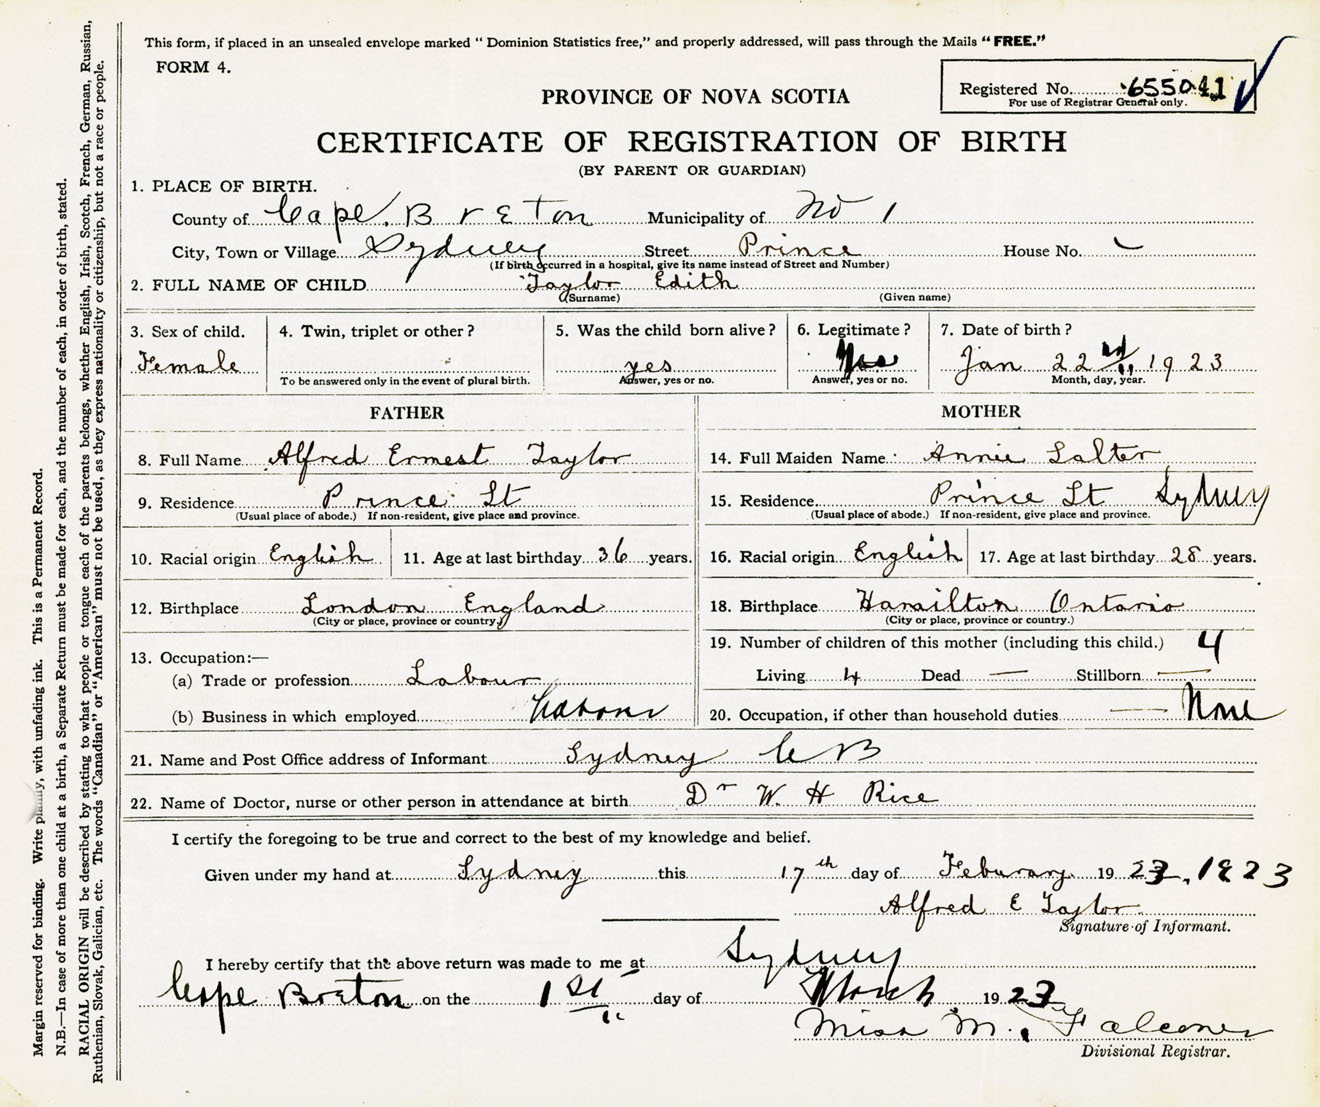 This form, if placed in an unsealed envelope marked " Dominion Statistics free," and properly addressed, will pass through the Mails " FREE."
FORM 4.
Registered No. 655041
For use of Registrar General only.
PROVINCE OF NOVA SCOTIA
CERTIFICATE OF REGISTRATION OF BIRTH
(BY PARENT OR GUARDIAN)
1. PLACE OF BIRTH.
County of Cape Breton Municipality of No 1
City, Town or Village Sydney Street Prince House No. –
(If birth occurred in a hospital, give its name instead of Street and Number)
2. FULL NAME OF CHILD Taylor Edith
(Surname) (Given name)
3. Sex of child. 4. Twin, triplet or other? 5. Was the child born alive? 6. Legitimate? 7. Date of birth?
Female yes Yes Jan 22 1923
To be answered only in the event of plural birth. Answer, yes or no. Answer, yes or no. Month, day, year.
FATHER MOTHER
8. Full Name Alfred Ernest Taylor 14. Full Maiden Name: Annie Salter
9. Residence Prince St 15. Residence Prince St Sydney
(Usual place of abode.) If non-resident, give place and province. (Usual place of abode.) If non-resident, give place and province.
10. Racial origin English 11. Age at last birthday 36 years. 16. Racial origin English 17. Age at last birthday 28 years.
12. Birthplace London England 18. Birthplace Hamilton Ontario
(City or place, province or country.) (City or place, province or country.)
13. Occupation:— 19. Number of children of this mother (including this child.) 4
(a) Trade or profession Labour Living 4 Dead — Stillborn —
(b) Business in which employed 20. Occupation, if other than household duties — None
21. Name and Post Office address of Informant Sydney C B
22. Name of Doctor, nurse or other person in attendance at birth Dr W. H Rice
I certify the foregoing to be true and correct to the best of my knowledge and belief.
Given under my hand at Sydney this 17th day of Feburary 1923, 1923
Alfred E Taylor
Signature of Informant.
I hereby certify that the above return was made to me at Sydney
Cape Breton on the 1st day of March 1923
Miss M. Falconer
Divisional Registrar.
Margin reserved for binding. Write plainly, with unfading ink. This is a Permanent Record.
N.B.—In case of more than one child at a birth, a Separate Return must be made for each, and the number of each, in order of birth, stated.
RACIAL ORIGIN will be described by stating to what people or tongue each of the parents belongs, whether English, Irish, Scotch, French, German, Russian,
Ruthenian, Slovak, Galician, etc. The words "Canadian" or "American" must not be used, as they express nationality or citizenship, but not a race or people.